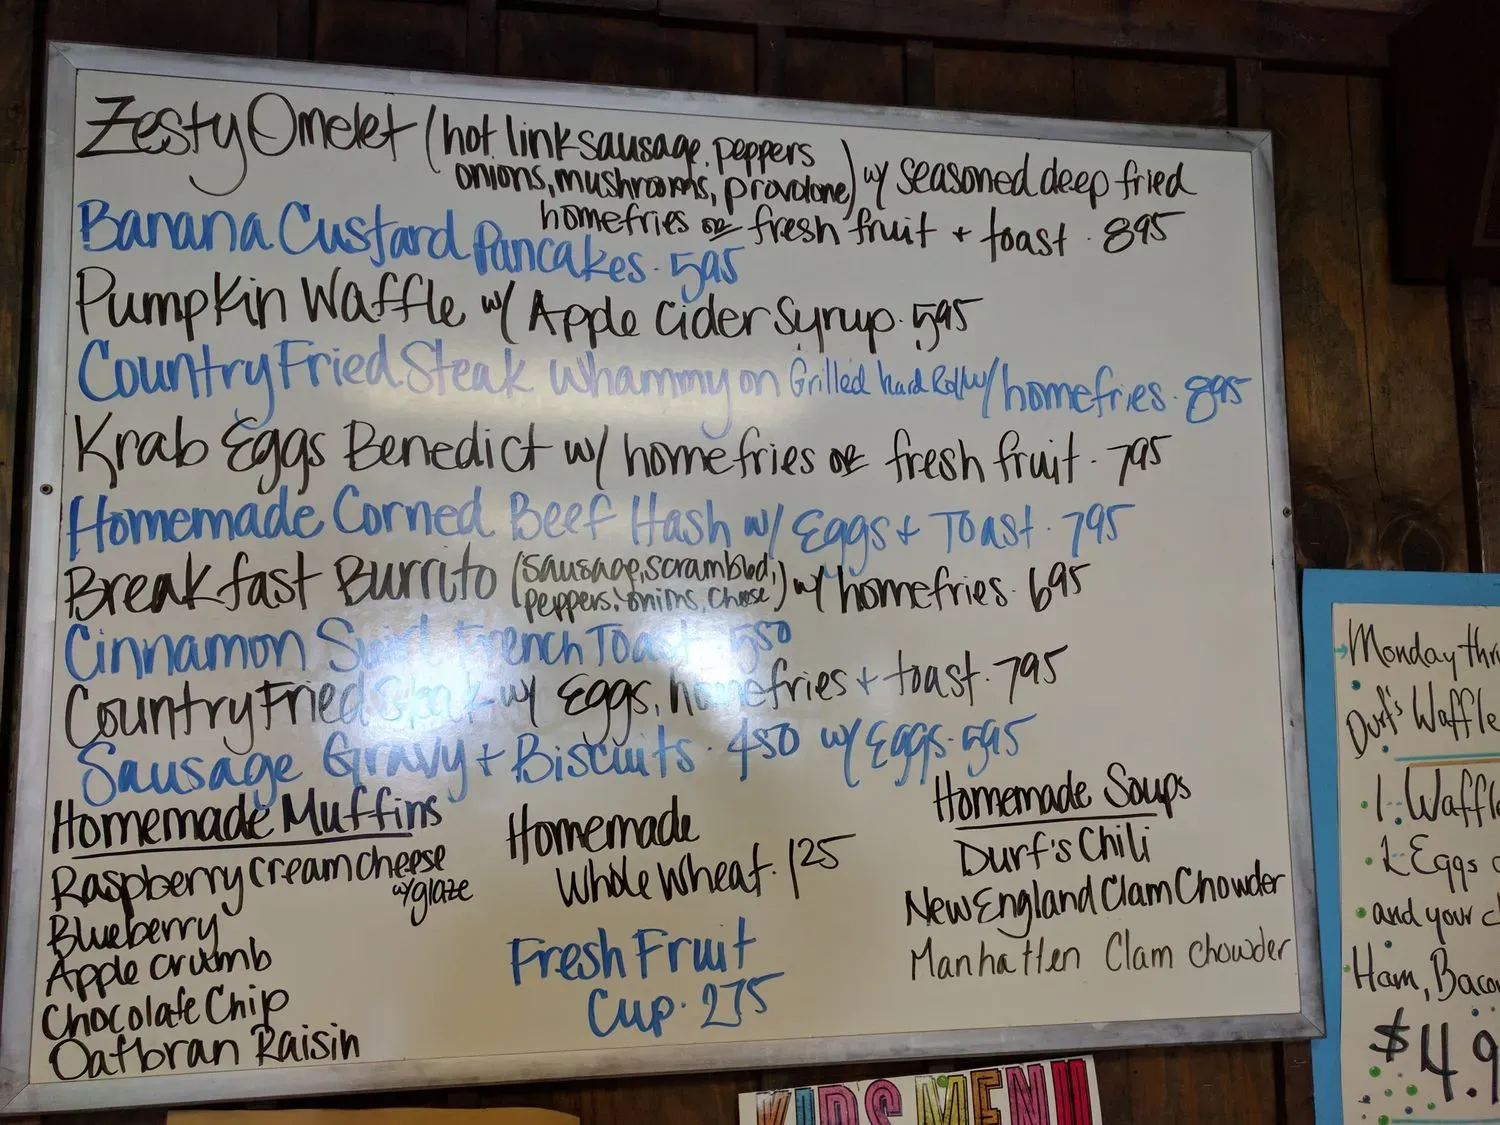 Zesty Omelet (hot link sausage, peppers
onions, mushrooms, provolone) w/ seasoned deep fried
homefries or fresh fruit + toast . 895
Banana Custard Pancakes . 595
Pumpkin Waffle w/ Apple Cider Syrup . 595
Country Fried Steak Whammy on Grilled hard Roll w/ homefries . 895
Krab Eggs Benedict w/ homefries or fresh fruit . 795
Homemade Corned Beef Hash w/ Eggs + Toast . 795
Breakfast Burrito (sausage, scrambled,
peppers, onions, cheese) w/ homefries . 695
Cinnamon Swirl French Toast 550
Country Fried Steak w/ Eggs, homefries + toast . 795
Sausage Gravy + Biscuits . 450 w/ Eggs . 595
Homemade Muffins
Raspberry Cream Cheese
w/ glaze
Blueberry
Apple crumb
Chocolate Chip
Oatbran Raisin
Homemade
Whole Wheat . 125
Fresh Fruit
Cup . 275
Homemade Soups
Durf's Chili
New England Clam Chowder
Manhatten Clam chowder
Monday thr
Durf's Waffle
1 Waffle
2 Eggs
and your c
Ham, Baco
$4.9
KIDS MENU